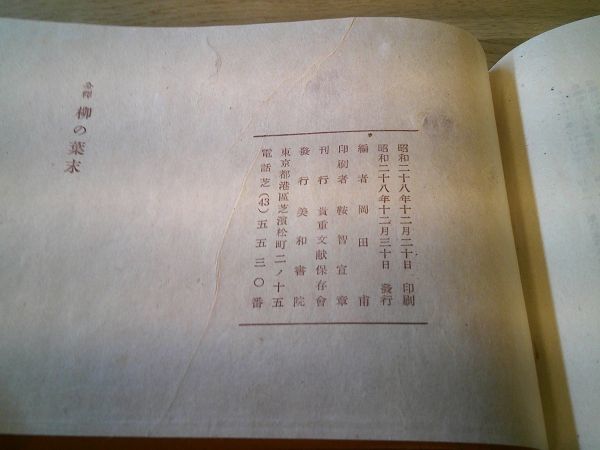 昭和二十八年十二月二十日 印刷
昭和二十八年十二月三十日 發行
編者 岡田甫
印刷者 鞍智宣章
刊行 貴重文献保存會
發行 美和書院
東京都港區芝濱松町二ノ十五
電話芝(43)五五三〇番
柳の葉末